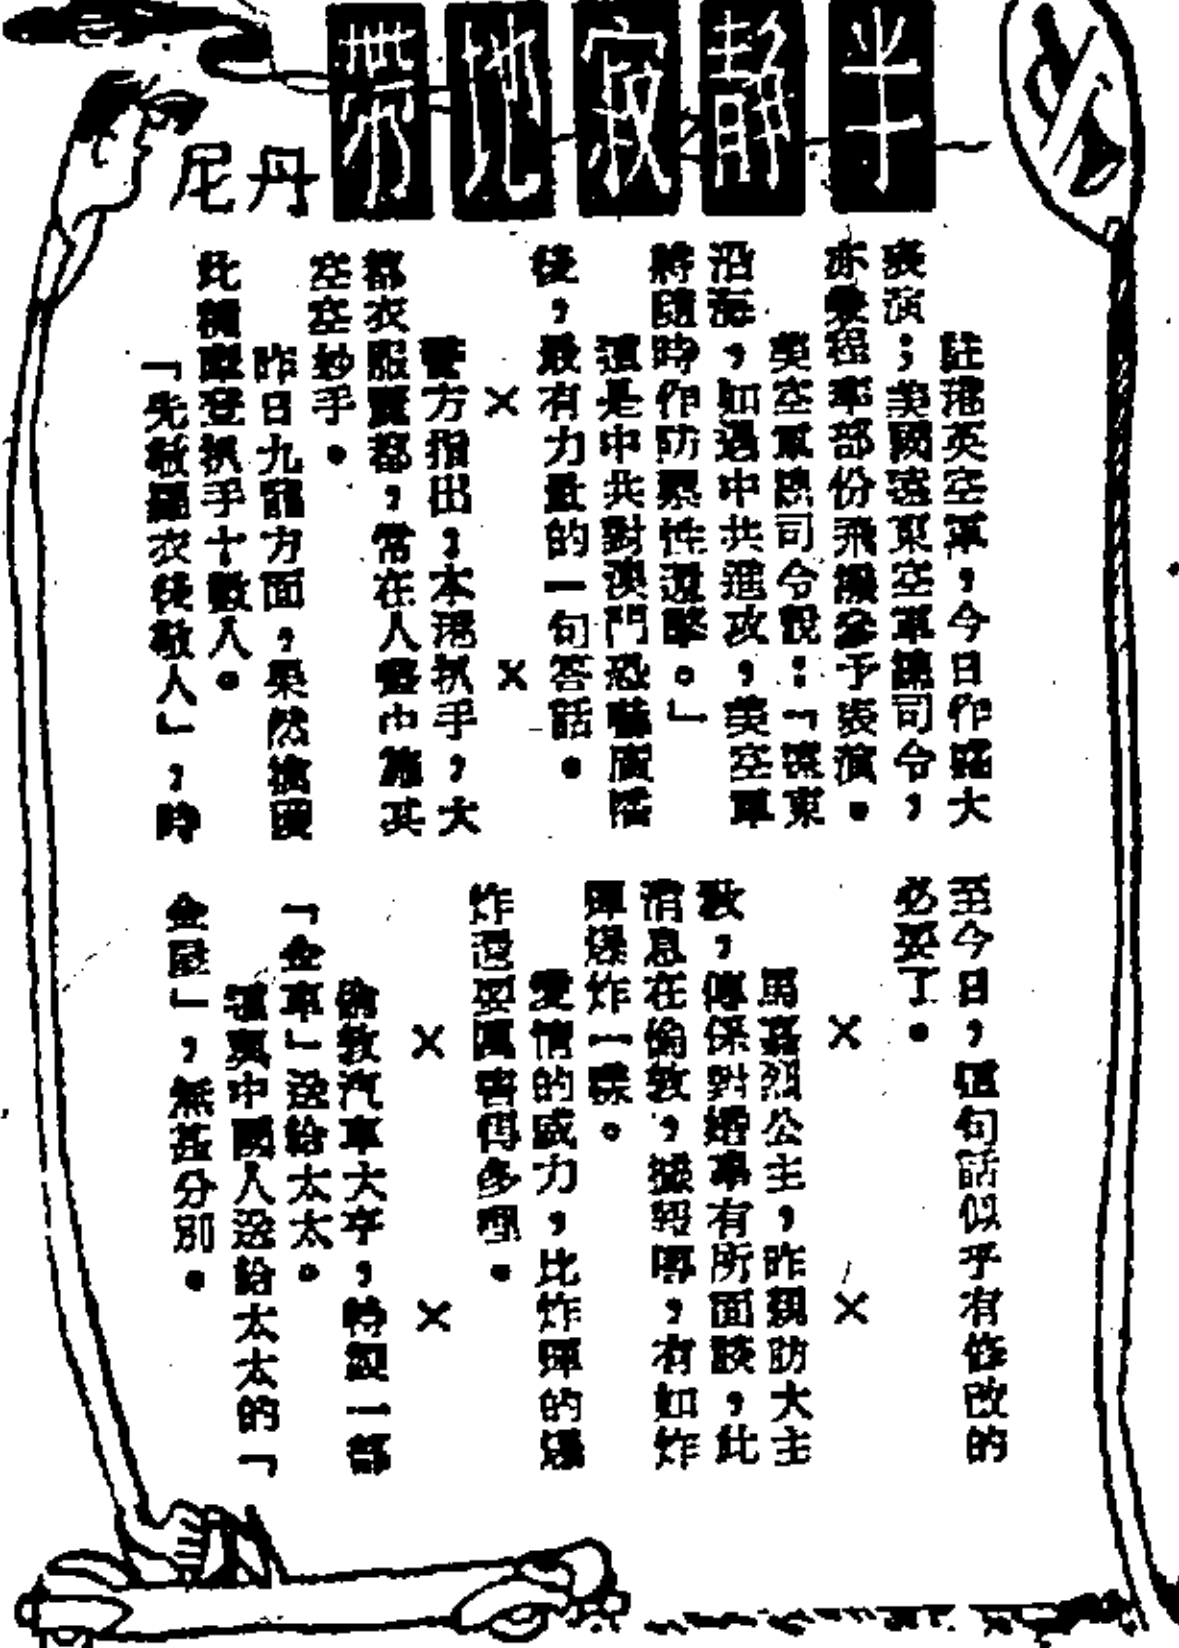 半靜寂地帶
丹尼
註港英空軍，今日作盛大
表演；美國遠東空軍總司令，
亦要程率部份飛機參予表演。
美空軍總司令說：「遠東
沿海，如遇中共進攻，美空軍
將隨時作防禦性還擊。」
這是中共對澳門恐嚇廣播
後，最有力量的一句答話。
× ×
警方指出；本港扒手，大
都衣服麗都，常在人叢中施其
空空妙手。
昨日九龍方面，果然擒獲
此類摩登扒手十數人。
「先敬羅衣後敬人」，時
至今日，這句話似乎有修改的
必要了。
× ×
馬嘉烈公主，昨親訪大主
教，傳係對婚事有所面談，此
消息在倫敦，據報導，有如炸
彈爆炸一樣。
愛情的威力，比炸彈的爆
炸還要厲害得多哩。
× ×
倫敦汽車大亨，特製一部
「金車」送給太太。
這與中國人送給太太的「
金屋」，無甚分別。